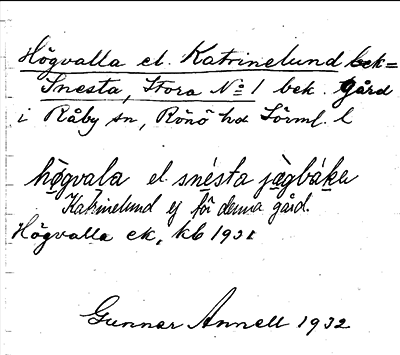 Högvalla el. Katrinelund bek=
Snesta, Stora No 1 bek. gård
i Råby sn, Rönö hd Sörml. l
högvala el snésta jàgbák
Katrinelund ej för denna gård.
Högvalla ek, kb 1931
Gunnar Annell 1932